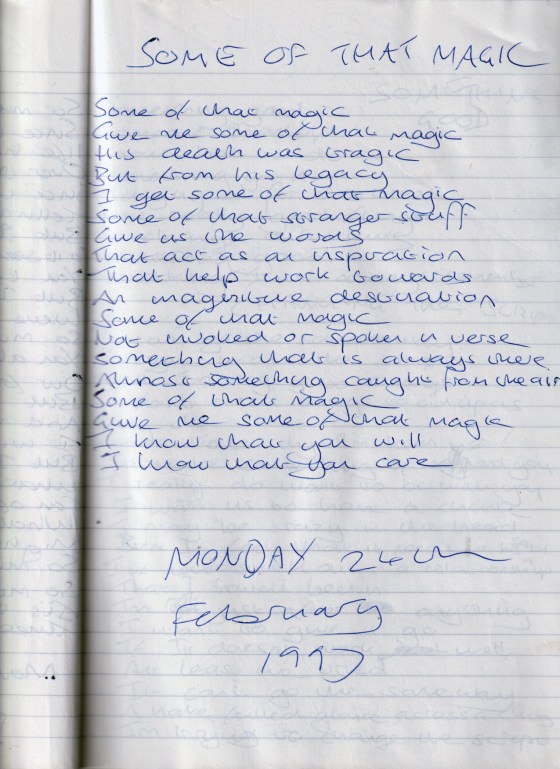 SOME OF THAT MAGIC
Some of that magic
Give me some of that magic
His death was tragic
But from his legacy
I get some of that magic
Some of that stranger stuff
Give us the words
That act as an inspiration
That help work towards
An imaginitive destination
Some of that magic
Not invoked or spoken in verse
Something that is always there
Almost something caught from the air
Some of that magic
Give me some of that magic
I know that you will
I know that you care
MONDAY 24th
February
1997